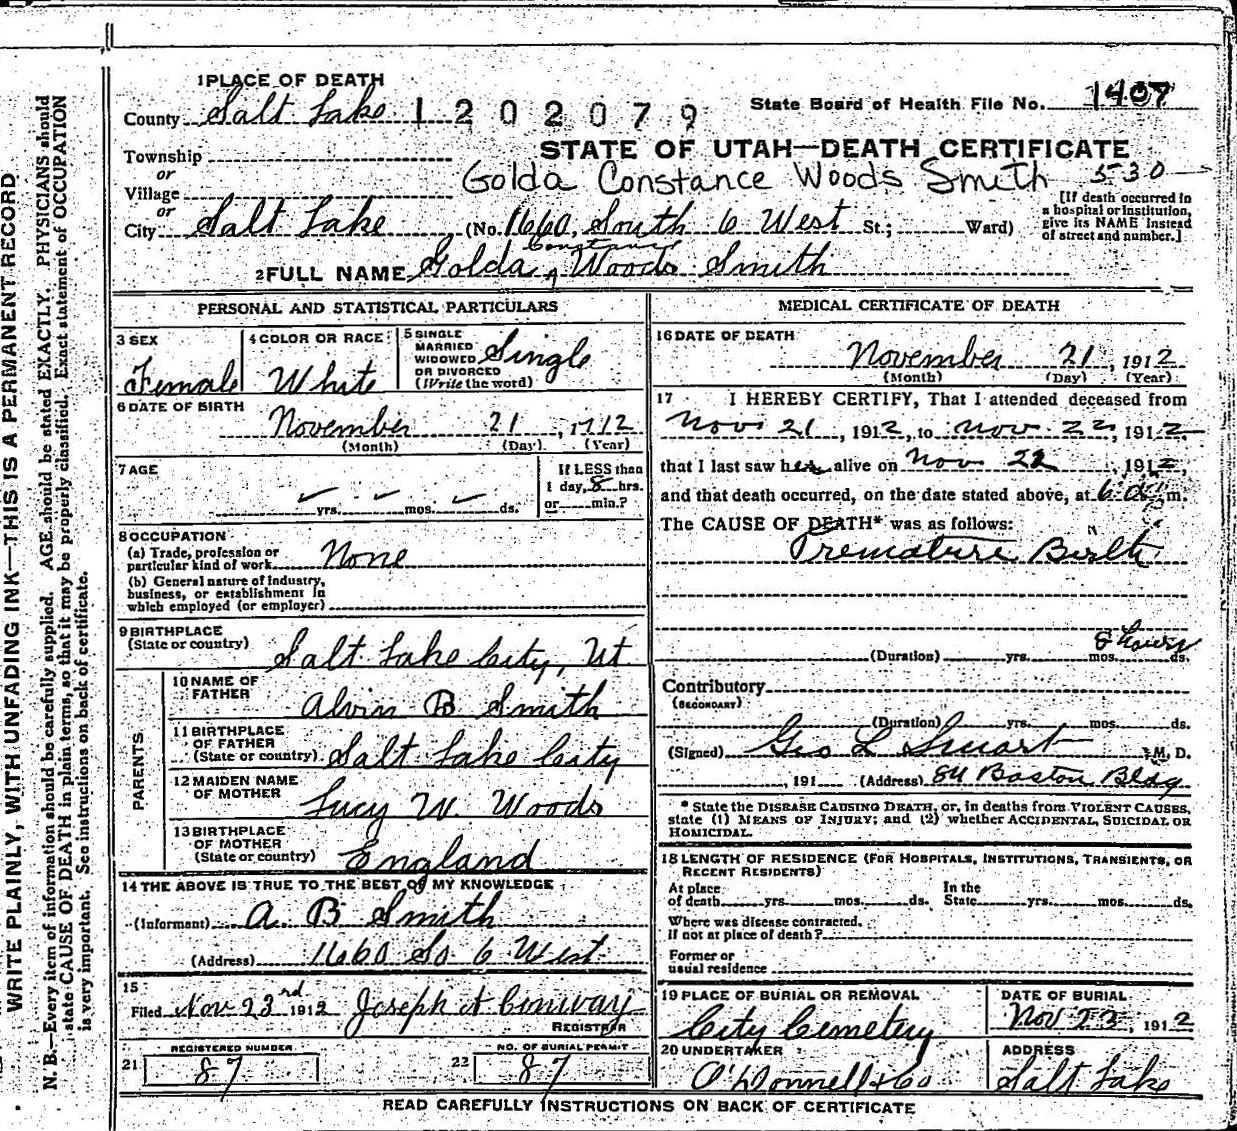 WRITE PLAINLY, WITH UNFADING INK—THIS IS A PERMANENT RECORD
N. B.—Every item of information should be carefully supplied. AGE should be stated EXACTLY. PHYSICIANS should
state CAUSE OF DEATH in plain terms, so that it may be properly classified. Exact statement of OCCUPATION
is very important. See instructions on back of certificate.
1 PLACE OF DEATH
County Salt Lake 1202079 State Board of Health File No. 1407
STATE OF UTAH—DEATH CERTIFICATE
Township
or
Village
or
Golda Constance Woods Smith 530
[If death occurred in
a hospital or institution,
give its NAME instead
of street and number.]
City Salt Lake (No. 1660 South 6 West St.; Ward)
Constance
2 FULL NAME Golda ^ Woods Smith
PERSONAL AND STATISTICAL PARTICULARS
3 SEX
Female
4 COLOR OR RACE
White
5 SINGLE
MARRIED
WIDOWED
OR DIVORCED
(Write the word)
Single
6 DATE OF BIRTH
November 21, 1912
(Month) (Day) (Year)
7 AGE
yrs. mos. ds.
If LESS than
1 day, 8 hrs.
or min.?
8 OCCUPATION
(a) Trade, profession or
particular kind of work None
(b) General nature of industry,
business, or establishment in
which employed (or employer)
9 BIRTHPLACE
(State or country) Salt Lake City, Ut
PARENTS
10 NAME OF
FATHER Alvin B Smith
11 BIRTHPLACE
OF FATHER
(State or country) Salt Lake City
12 MAIDEN NAME
OF MOTHER Lucy W. Woods
13 BIRTHPLACE
OF MOTHER
(State or country) England
14 THE ABOVE IS TRUE TO THE BEST OF MY KNOWLEDGE
(Informant) A. B Smith
(Address) 1660 So. 6 West
15
Filed Nov 23rd 1912 Joseph H Conway
REGISTRAR
REGISTERED NUMBER
21 87
NO. OF BURIAL PERMIT
22 87
MEDICAL CERTIFICATE OF DEATH
16 DATE OF DEATH
November 21, 1912
(Month) (Day) (Year)
17 I HEREBY CERTIFY, That I attended deceased from
Nov 21, 1912, to Nov. 22, 1912
that I last saw her alive on Nov 22, 1912,
and that death occurred, on the date stated above, at 6 m.
The CAUSE OF DEATH* was as follows:
Premature Birth
8 hours
(Duration) yrs. mos. ds.
Contributory
(SECONDARY)
(Duration) yrs. mos. ds.
(Signed) Geo L Smart M. D.
, 191 (Address) 84 Boston Bldg
* State the DISEASE CAUSING DEATH, or, in deaths from VIOLENT CAUSES,
state (1) MEANS OF INJURY; and (2) whether ACCIDENTAL, SUICIDAL OR
HOMICIDAL.
18 LENGTH OF RESIDENCE (FOR HOSPITALS, INSTITUTIONS, TRANSIENTS, OR
RECENT RESIDENTS)
At place
of death yrs. mos. ds.
In the
State yrs. mos. ds.
Where was disease contracted,
if not at place of death?
Former or
usual residence
19 PLACE OF BURIAL OR REMOVAL
City Cemetery
DATE OF BURIAL
Nov 23, 1912
20 UNDERTAKER
O'Donnell & Co
ADDRESS
Salt Lake
READ CAREFULLY INSTRUCTIONS ON BACK OF CERTIFICATE